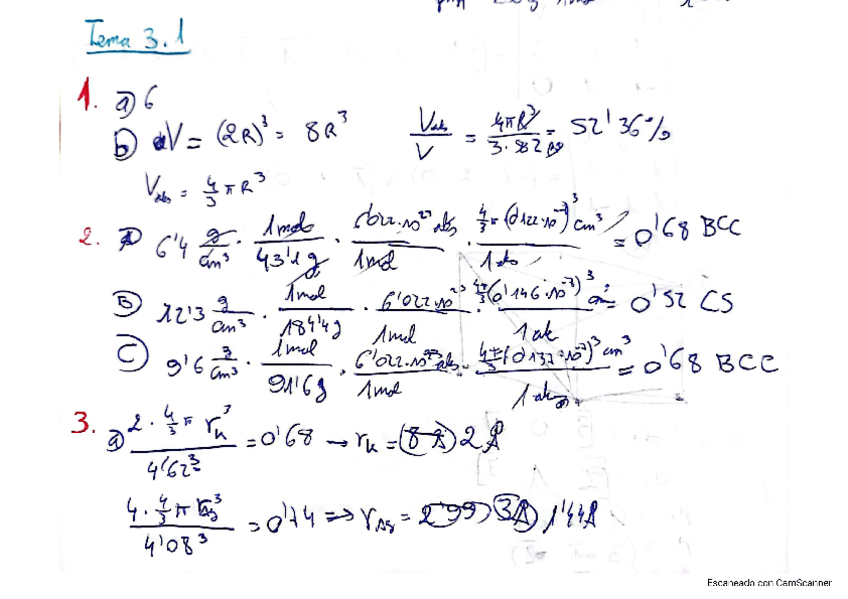 Tema 3.1
1. a) 6
b) V = (2R)³ = 8R³ V / V = 4πR³ / 3·8R³ = 52'36%
V = 4/3 πR³
2. A) 6'4 g/cm³ · 1mol / 43'1g · 6'022·10²³ / 1mol · 4/3π(0'122·10⁻⁷)³cm³ / = 0'68 BCC
B) 12'3 g/cm³ · 1mol / 184'4g · 6'022·10²³ / 1mol · 4π/3(0'146·10⁻⁷)³ / = 0'52 CS
C) 9'6 g/cm³ · 1mol / 91'6g · 6'022·10²³ / 1mol · 4π/3(0'137·10⁻⁷)³cm³ / = 0'68 BCC
3. a) 2·4/3 π r³ / 4'62³ = 0'68 → r = 2 Å
4·4/3 π r³ / 4'08³ = 0'74 ⇒ r = 1'44Å
Escaneado con CamScanner